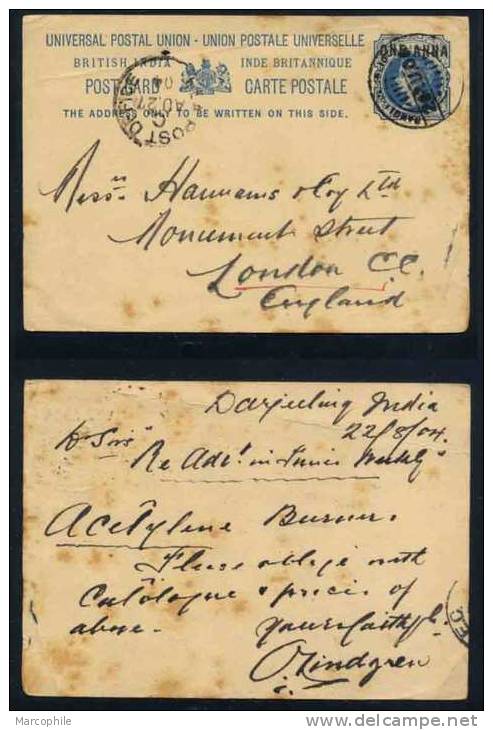 UNIVERSAL POSTAL UNION · UNION POSTALE UNIVERSELLE
BRITISH INDIA INDE BRITANNIQUE
POST CARD CARTE POSTALE
THE ADDRESS ONLY TO BE WRITTEN ON THIS SIDE.
ONE ANNA
POST OFFICE
C
AU 27
04
Messrs Hannams & Coy Ltd
Monument Street
London E.C.
England
Darjeeling India
22/8/04.
D Sirs
Re Advt in Times Weekly
Acetylene Burner.
Please oblige with
Catalogue & prices of
above. Yours faithfly
O Lindgren
E.C
Marcophile
delcampe.net